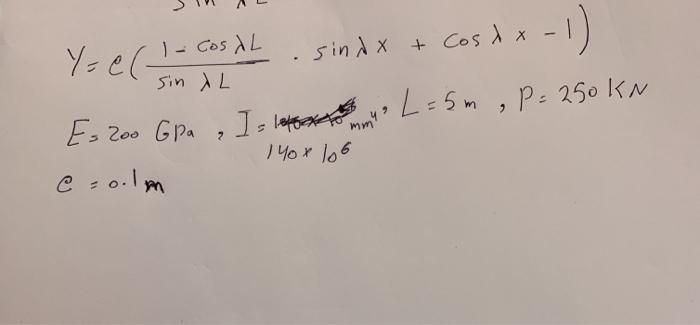 sin λL
Y = e( (1 - cos λL) / (sin λL) . sin λ x + cos λ x - 1)
E = 200 GPa , I = mm⁴ , L = 5 m , P = 250 KN
140 × 10⁶
e = 0.1 m